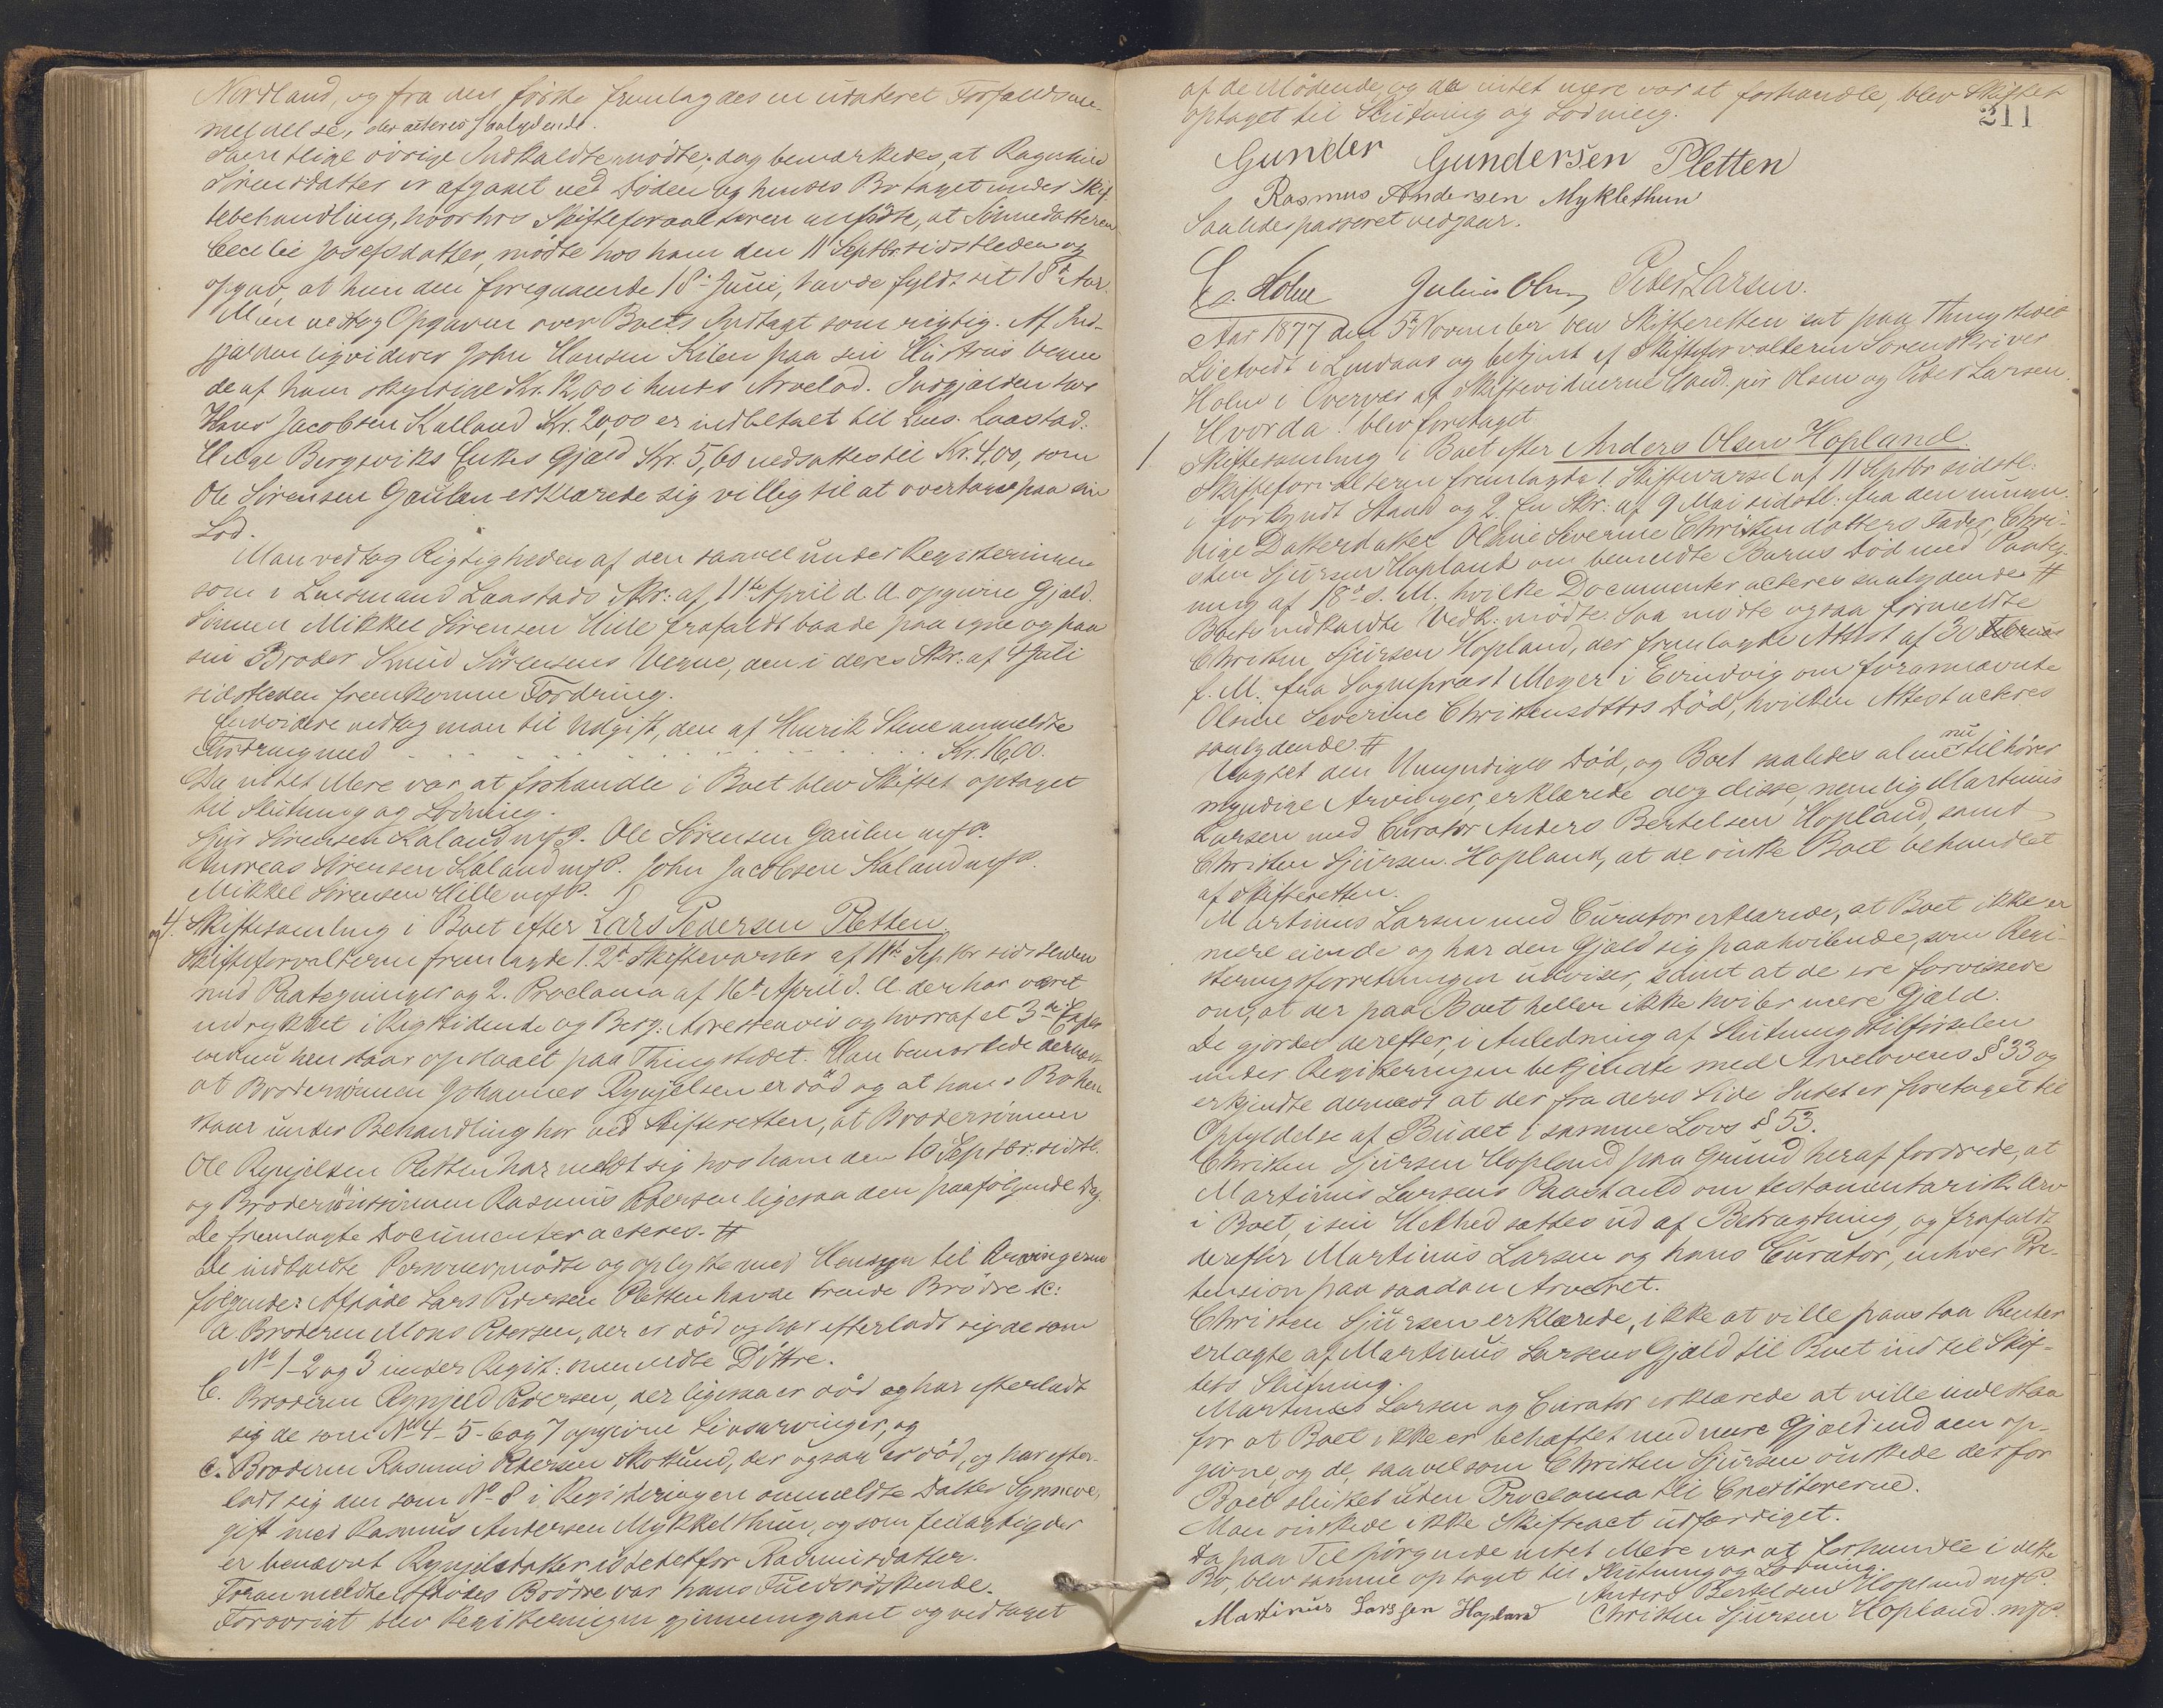 Nordland, og fra den første fremlagdes en udateret Forfaldsan-
meldelse, der acteres saalydende.
Samtlige øvrige Indkaldte mødte; dog bemærkedes, at Ragnhild
Sørensdatter er afgaaet ved Døden og hendes Bo taget under Skif-
tebehandling, hvorhos Skifteforvalteren anførte, at Sønnedatteren
Cecilie Josefsdatter, mødte hos ham den 11 Septbr. sidstleden og
opgav, at hun den foregaaende 18de Juni, havde fyldt sit 18de Aar.
Man vedtog Opgaven over Boets Indtægt som rigtig. Af Ind-
gjælden liqviderer John Hansen Kilen paa sin Hustrus Vegne
de af ham skyldige Kr. 12,00 i hendes Arvelod. Indgjælden hos
Hans Jacobsen Kalland Kr. 20,00 er indbetalt til Lens. Laastad.
Helge Bergsviks Enkes Gjæld Kr. 5,60 nedsattes til Kr. 4,00, som
Ole Sørensen Gaulen erklærede sig villig til at overtage paa sin
Lod.
Man vedtog Rigtigheden af den saavel under Registeringen
som i Lensmand Laastads Skr: af 11te April d. A. opgivne Gjæld.
Sønnen Mikkel Sørensen Hille frafaldt baade paa egne og paa
sin Broder Knud Sørensens Vegne, den i deres Skr: af 4 Juli
sidstleden fremkomne Fordring.
Endvidere vedtog man til Udgift, den af Henrik Stene anmeldte
Fordring med . . . . . . . . . . Kr. 16,00.
Da intet Mere var at forhandle i Boet blev Skiftet optaget
til Slutning og Lodning.
Sjur Sørensen Kaland m/P. Ole Sørensen Gaulen m/P.
Andreas Sørensen Kaland m/P. John Jacobsen Kaland m/P.
Mikkel Sørensen Hille m/P.
og 4. Skiftesamling i Boet efter Lars Pedersen Pletten.
Skifteforvalteren fremlagde 1. 2de Skiftevarsler af 11te Septbr sidstleden
med Paategninger og 2. Proclama af 16de April d. A. der har været
indrykket i Rigstidende og Berg. Adresseavis og hvoraf et 3die Expl.
endnu henstaar opslaaet paa Thingstedet. Han bemærkede dernæst
at Brodersønnen Johannes Rynjelsen er død og at hans Bo hen-
staar under Behandling her ved Skifteretten, at Brodersønnen
Ole Rynjelsen Pletten har meldt sig hos ham den 10 Septbr. sidstl.
og Brodersønssønnen Rasmus Pedersen ligesaa den paafølgende Dag.
De fremlagte Documenter acteres. #
De indkaldte Personer mødte og oplyste med Hensyn til Arvingerne
følgende: Afdøde Lars Pedersen Pletten havde trende Brødre sc:
a. Broderen Mons Pedersen, der er død og har efterladt sig de som
No 1-2 og 3 under Regist: anmeldte Døttre.
b. Broderen Rynjeld Pedersen, der ligesaa er død og har efterladt
sig de som No 4-5-6 og 7 opgivne Livsarvinger, og
c. Broderen Rasmus Pedersen Skotund, der ogsaa er død, og har efter-
ladt sig den som No 8 i Registeringen anmeldte Datter Synneve,
gift med Rasmus Andersen Mykkelthun, og som feilagtig der
er benævnt Rynjelsdatter istedetfor Rasmusdatter.
Foranmeldte Afdødes Brødre var hans Fuldsødskende.
Forøvrigt blev Registeringen gjennemgaaet og vedtaget
211
af de Mødende, og da intet mere var at forhandle, blev Skiftet
optaget til Slutning og Lodning.
Gunder Gundersen Pletten
Rasmus Andersen Myklethun
Saaledes passeret vedgaaer.
Holm Julius Olsen Peder Larsen.
Aar 1877 den 5te November blev Skifteretten sat paa Thingstedet
Lietvedt i Lindaas og betjent af Skifteforvalteren Sorenskriver
Holm i Overvær af Skiftevidnerne Cand. jur Olsen og Peder Larsen.
Hvorda! blev foretaget
1. Skiftesamling i Boet efter Anders Olsen Hopland.
Skifteforvalteren fremlagde 1. Skiftevarsel af 11 Septbr sidstl.
i forkyndt Stand og 2. En Skr: af 9 Mai sidstl. fra den umyn-
dige Datterdatter Olsine Severine Christensdatters Fader, Chri-
sten Sjursen Hopland om bemeldte Barns Død med Paateg-
ning af 18de s. M. hvilke Documenter acteres saalydende #
Boets indkaldte Vedk. mødte. Saa mødte ogsaa førmeldte
Christen Sjursen Hopland, der fremlagde Attest af 30
f. M. fra Sogneprest Meyer i Evindvig om forannævnte
Olsine Severine Christensdatters Død, hvilken Attest acteres
saalydende. #
Uagtet den Umyndiges Død, og Boet saaledes alene nu tilhører
myndige Arvinger, erklærede dog disse, nemlig Martinus
Larsen med Curator Anders Bertelsen Hopland, samt
Christen Sjursen Hopland, at de ønske Boet behandlet
af Skifteretten.
Martinus Larsen med Curator erklærede, at Boet ikke er
mere eiende og har den Gjæld sig paahvilende, som Regi-
steringsforretningen udviser, samt at de ere forvissede
om, at der paa Boet heller ikke hviler mere Gjæld.
De gjordes derefter, i Anledning af Slutningstilførselen
under Registeringen bekjendte med Arvelovens § 33 og
erkjendte dernæst at der fra deres Side Intet er foretaget til
Opfyldelse af Budet i samme Lovs § 53.
Christen Sjursen Hopland paa Grund heraf fordrede, at
Martinus Larsens Paastand om testamentarisk Arv
i Boet, i sin Helhed sattes ud af Betragtning, og frafaldt
derefter Martinus Larsen og hans Curator, enhver Præ-
tension paa saadan Arveret.
Christen Sjursen erklærede, ikke at ville paastaa Renter
erlagte af Martinus Larsens Gjæld til Boet indtil Skif-
tets Slutning.
Martinus Larsen og Curator erklærede at ville indestaa
for at Boet ikke er behæftet med mere Gjæld end den op-
givne, og de, saavelsom Christen Sjursen ønskede derfor
Boet sluttet uden Proclama til Creditorerne.
Man ønskede ikke Skifteact udfærdiget.
Da paa Tilspørgende intet Mere var at forhandle i dette
Bo, blev samme optaget til Slutning og Lodning.
Anders Bertelsen Hopland m/P.
Martinus Larssen Hopland Christen Sjursen Hopland. m/P.